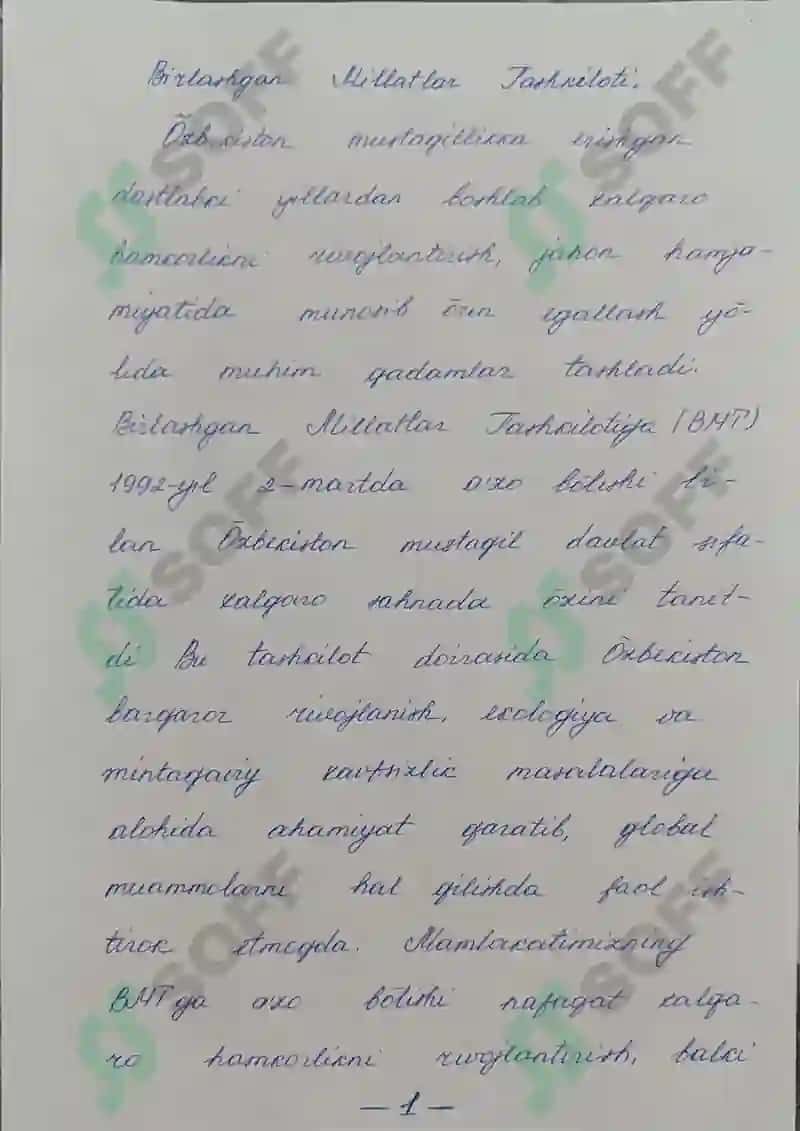 Birlashgan Millatlar Tashkiloti.
Ōzbekiston mustaqillikka erishgan
dastlabki yillardan boshlab xalqaro
hamkorlikni rivojlantirish, jahon hamja-
miyatida munosib ōrin egallash yō-
lida muhim qadamlar tashladi.
Birlashgan Millatlar Tashkilotiga (BMT)
1992-yil 2-martda a'zo bōlishi bi-
lan Ōzbekiston mustaqil davlat sifa-
tida xalqaro sahnada ōzini tanit-
di Bu tashkilot doirasida Ōzbekiston
barqaror rivojlanish, ekologiya va
mintaqaviy xavfsizlik masalalariga
alohida ahamiyat qaratib, global
muammolarni hal qilishda faol ish-
tirok etmoqda. Mamlakatimizning
BMTga azo bōlishi nafaqat xalqa-
ro hamkorlikni rivojlantirish, balki
— 1 —
SOFF
SOFF
SOFF
SOFF
SOFF
SOFF